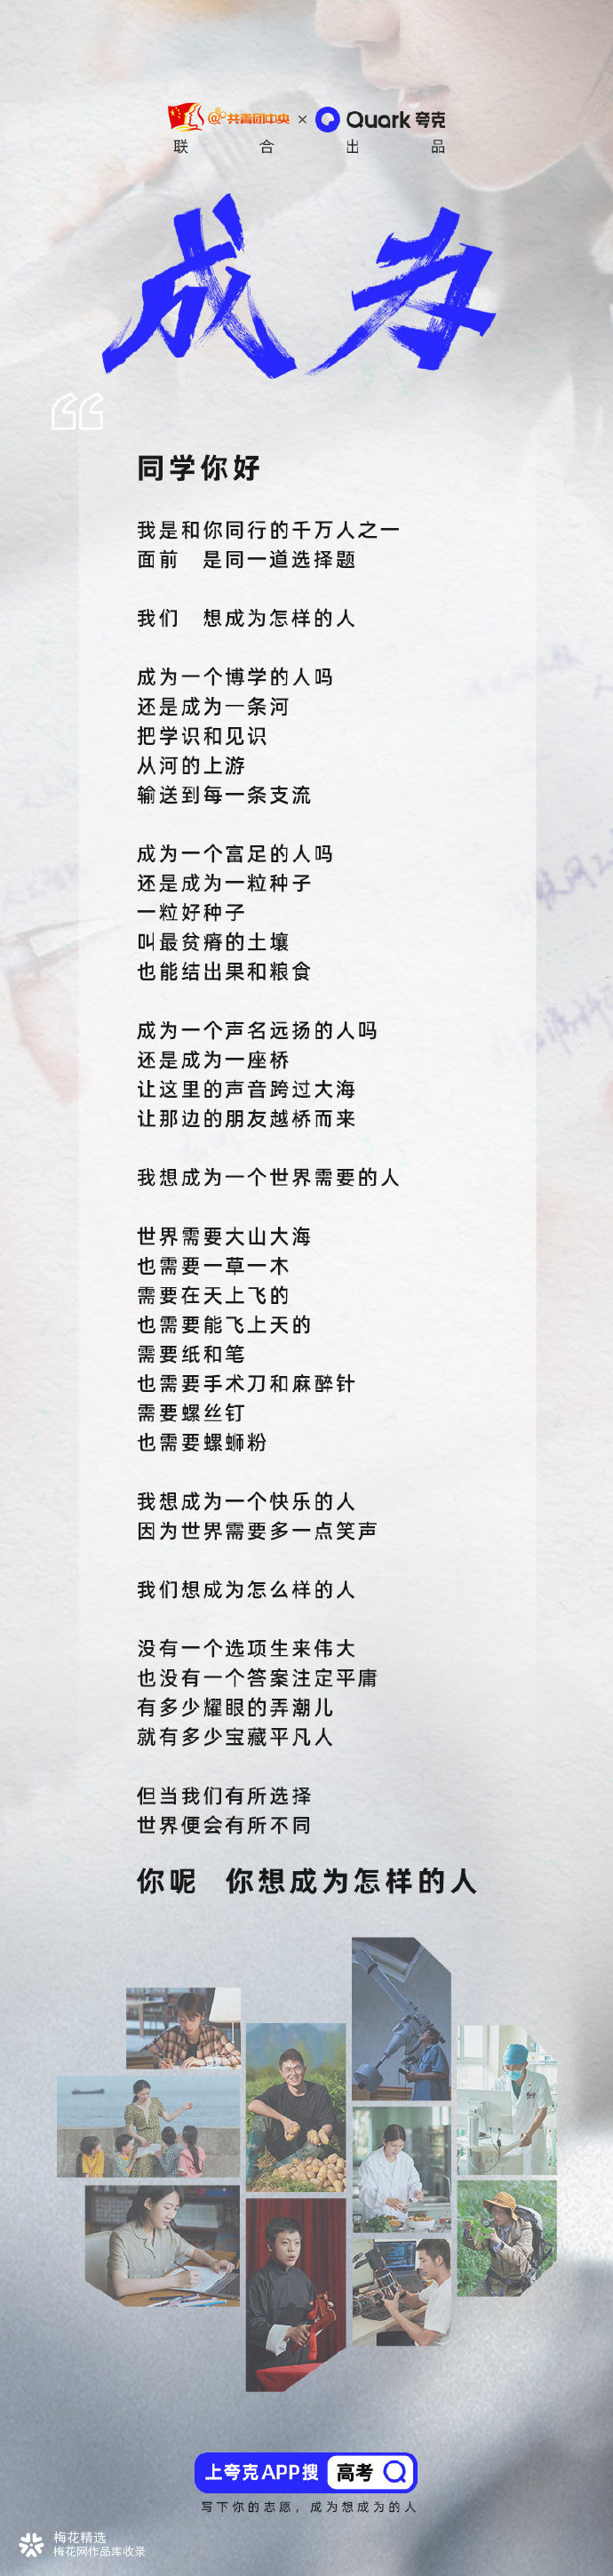 @共青团中央 × Quark 夸克
联合出品
成为
同学你好
我是和你同行的千万人之一
面前 是同一道选择题
我们 想成为怎样的人
成为一个博学的人吗
还是成为一条河
把学识和见识
从河的上游
输送到每一条支流
成为一个富足的人吗
还是成为一粒种子
一粒好种子
叫最贫瘠的土壤
也能结出果和粮食
成为一个声名远扬的人吗
还是成为一座桥
让这里的声音跨过大海
让那边的朋友越桥而来
我想成为一个世界需要的人
世界需要大山大海
也需要一草一木
需要在天上飞的
也需要能飞上天的
需要纸和笔
也需要手术刀和麻醉针
需要螺丝钉
也需要螺蛳粉
我想成为一个快乐的人
因为世界需要多一点笑声
我们想成为怎么样的人
没有一个选项生来伟大
也没有一个答案注定平庸
有多少耀眼的弄潮儿
就有多少宝藏平凡人
但当我们有所选择
世界便会有所不同
你呢 你想成为怎样的人
上夸克APP搜 高考
写下你的志愿，成为想成为的人
梅花精选
梅花网作品库收录